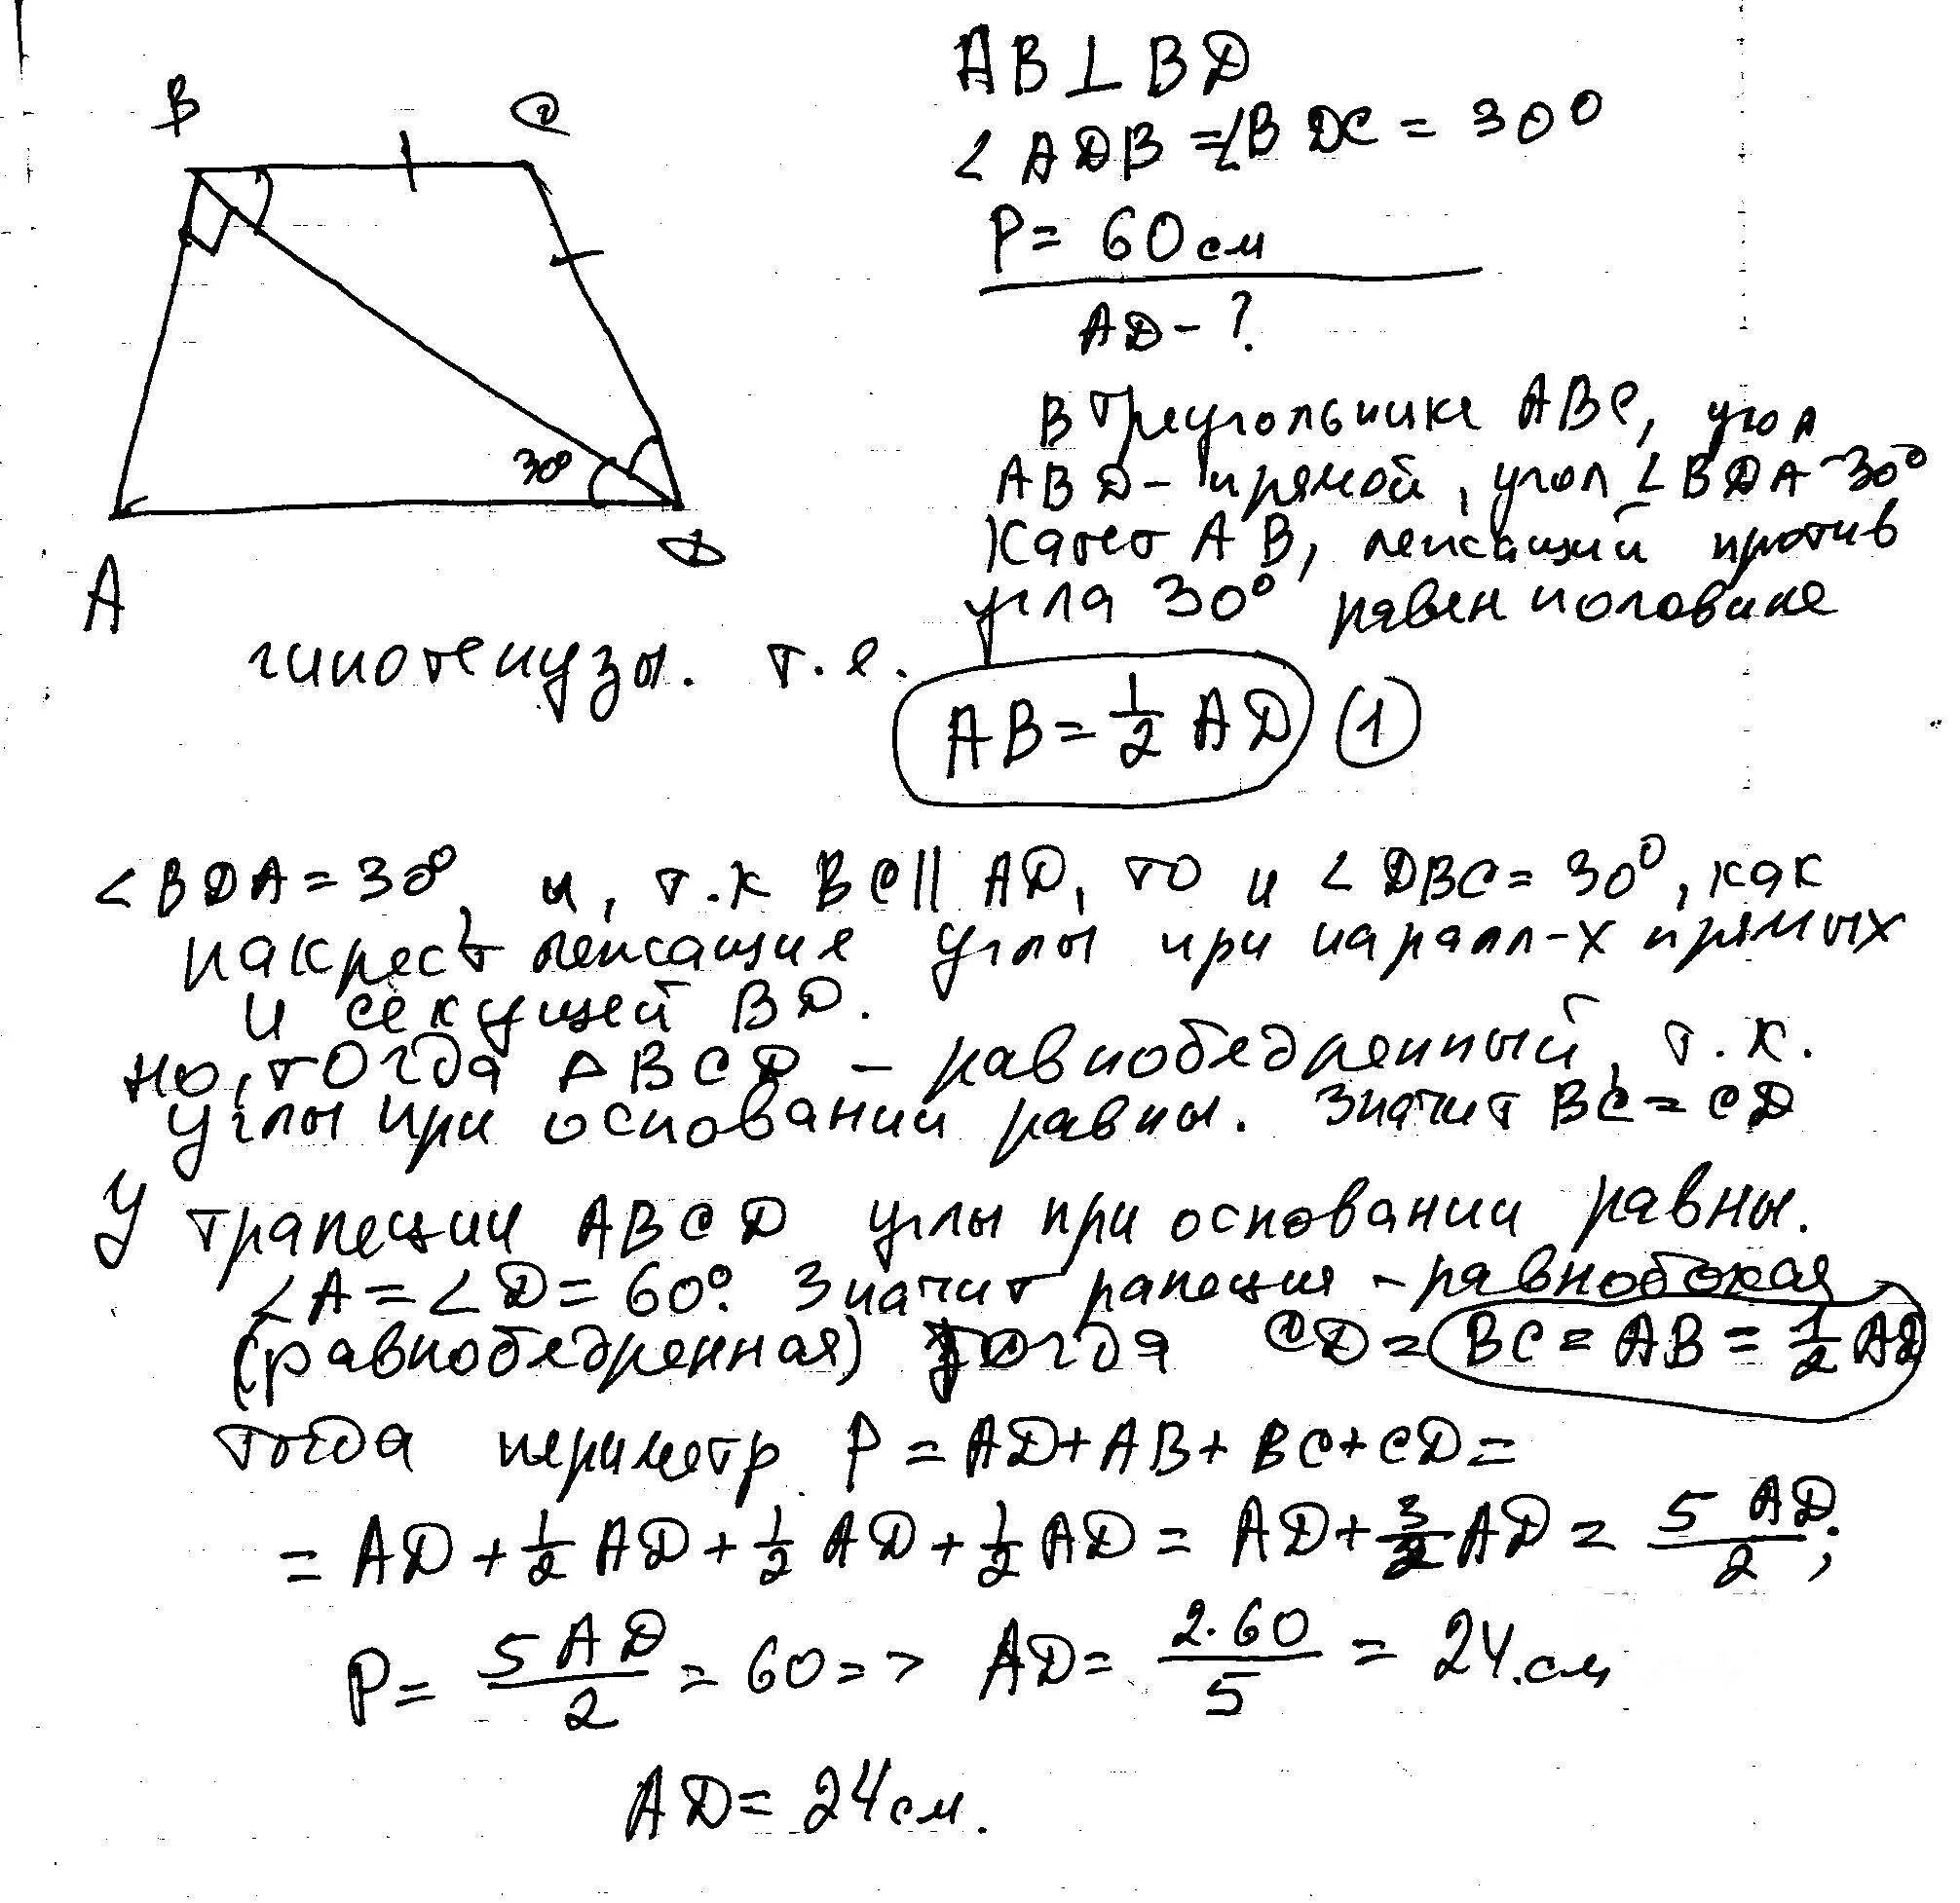 B C
30°
A D
AB⊥BD
∠ADB=∠BDC=30°
P=60см
AD-?
В треугольнике ABC, угол
ABD- прямой, угол ∠BDA-30°
Катет AB, лежащий против
угла 30° равен половине
гипотенузы. т.е.
AB=1/2 AD (1)
∠BDA=30°, и, т.к BC||AD, то и ∠DBC=30°, как
накрест лежащие углы при паралл-х прямых
и секущей BD.
но, тогда △BCD – равнобедренный, т.к.
углы при основании равны. Значит BC=CD
У трапеции ABCD углы при основании равны.
∠A=∠D=60°. Значит рапеция - равнобокая
(равнобедренная) тогда CD=BC=AB=1/2 AD
тогда периметр P=AD+AB+BC+CD=
=AD+1/2 AD+1/2 AD+1/2 AD=AD+3/2 AD=5 AD/2;
P=5AD/2=60=> AD=2·60/5=24.см
AD=24см.